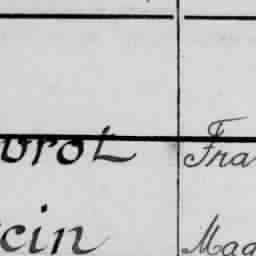 orot Fra
cin Mad